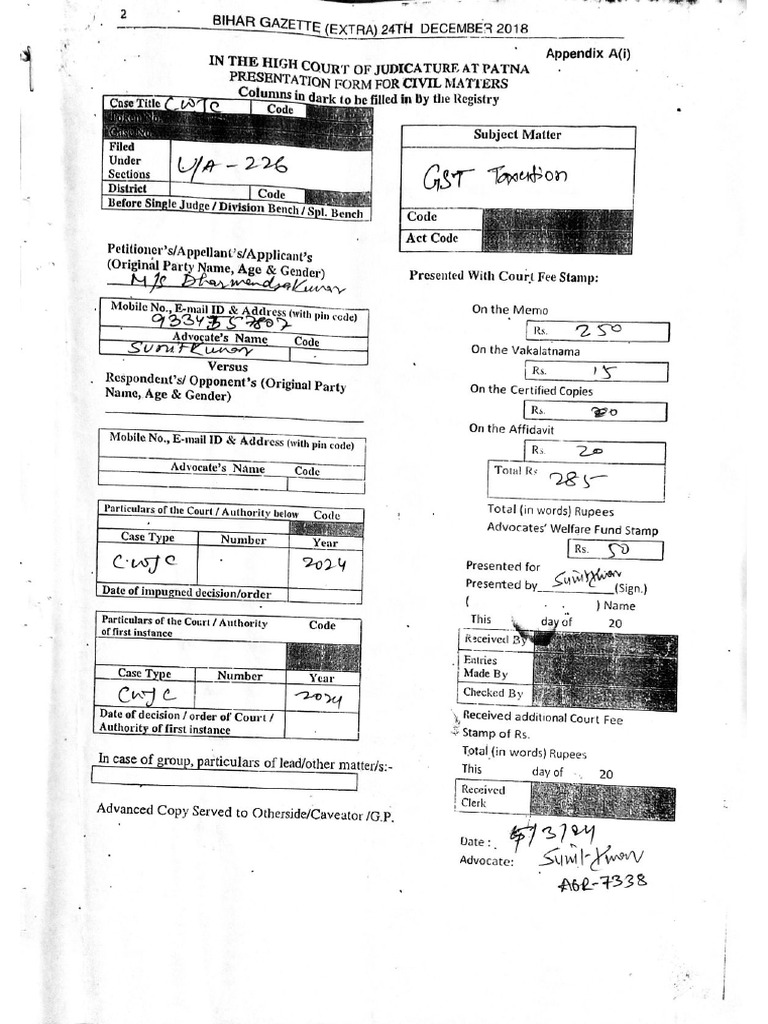 2
BIHAR GAZETTE (EXTRA) 24TH DECEMBER 2018
Appendix A(i)
IN THE HIGH COURT OF JUDICATURE AT PATNA
PRESENTATION FORM FOR CIVIL MATTERS
Columns in dark to be filled in by the Registry
Case Title CWJC Code
Token No.
Case No.
Filed Under Sections U/A-226
District Code
Before Single Judge / Division Bench / Spl. Bench
Petitioner's/Appellant's/Applicant's
(Original Party Name, Age & Gender)
M/S Dharmendra Kumar
Mobile No., E-mail ID & Address (with pin code)
Advocate's Name Code
Sumit Kumar
Versus
Respondent's/ Opponent's (Original Party
Name, Age & Gender)
Mobile No., E-mail ID & Address (with pin code)
Advocate's Name Code
Particulars of the Court / Authority below Code
Case Type Number Year
CWJC 2024
Date of impugned decision/order
Particulars of the Court / Authority Code
of first instance
Case Type Number Year
CWJC 2024
Date of decision / order of Court /
Authority of first instance
In case of group, particulars of lead/other matter/s:-
Advanced Copy Served to Otherside/Caveator /G.P.
Subject Matter
GST Taxation
Code
Act Code
Presented With Court Fee Stamp:
On the Memo
Rs. 250
On the Vakalatnama
Rs. 15
On the Certified Copies
Rs.
On the Affidavit
Rs. 20
Total Rs 285
Total (in words) Rupees
Advocates' Welfare Fund Stamp
Rs. 50
Presented for
Presented by Sumit Kumar (Sign.)
( ) Name
This day of 20
Received By
Entries
Made By
Checked By
Received additional Court Fee
Stamp of Rs.
Total (in words) Rupees
This day of 20
Received
Clerk
Date : 5/3/24
Advocate: Sumit Kumar
AGR-7338